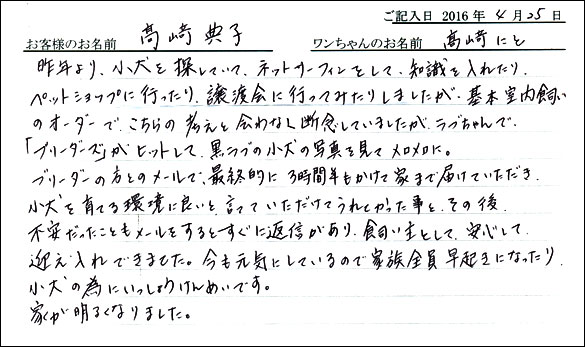 ご記入日 2016 年 4 月 25 日
お客様のお名前 高崎 典子 ワンちゃんのお名前 高崎 にと
昨年より、小犬を探していて、ネットサーフィンをして、知識を入れたり、
ペットショップに行ったり、譲渡会に行ってみたりしましたが、基本室内飼い
のオーダーで、こちらの考えと合わなく断念していましたが、ラブちゃんで、
「ブリーダーズ」がヒットして、黒ラブの小犬の写真を見てメロメロに。
ブリーダーの方とのメールで、最終的に3時間半もかけて家まで届けていただき、
小犬を育てる環境に良いと、言っていただけてうれしかった事と、その後、
不安だったこともメールをするとすぐに返信があり、飼い主として、安心して
迎え入れできました。今も元気にしているので家族全員早起きになったり、
小犬の為にいっしょうけんめいです。
家が明るくなりました。